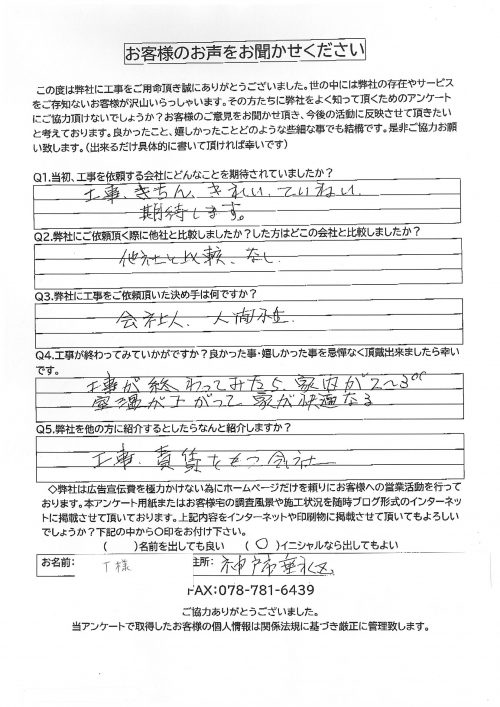 お客様のお声をお聞かせください
この度は弊社に工事をご用命頂き誠にありがとうございました。世の中には弊社の存在やサービス
をご存知ないお客様が沢山いらっしゃいます。その方たちに弊社をよく知って頂くためのアンケート
にご協力頂けないでしょうか？お客様のご意見をお聞かせ頂き、今後の活動に反映させて頂きたい
と考えております。良かったこと、嬉しかったことどのような些細な事でも結構です。是非ご協力お願
い致します。（出来るだけ具体的に書いて頂ければ幸いです）
Q1.当初、工事を依頼する会社にどんなことを期待されていましたか？
工事、きちん、きれい、ていねい、
期待します。
Q2.弊社にご依頼頂く際に他社と比較しましたか？した方はどこの会社と比較しましたか？
他社と比較、なし
Q3.弊社に工事をご依頼頂いた決め手は何ですか？
会社人、人間性
Q4.工事が終わってみていかがですか？良かった事・嬉しかった事を忌憚なく頂戴出来ましたら幸い
です。
工事が終わってみたら、家内が2〜3°
室温が上がって家が快適なる
Q5.弊社を他の方に紹介するとしたらなんと紹介しますか？
工事、責任をもつ会社
◇弊社は広告宣伝費を極力かけない為にホームページだけを頼りにお客様への営業活動を行って
おります。本アンケート用紙またはお客様宅の調査風景や施工状況を随時ブログ形式のインターネッ
トに掲載させて頂いております。上記内容をインターネットや印刷物に掲載させて頂いてもよろしい
でしょうか？下記の中から〇印をお付け下さい。
（　　）名前を出しても良い　（〇）イニシャルなら出してもよい
お名前：　T様　住所：神戸市垂水区
FAX：078-781-6439
ご協力ありがとうございました。
当アンケートで取得したお客様の個人情報は関係法規に基づき厳正に管理致します。